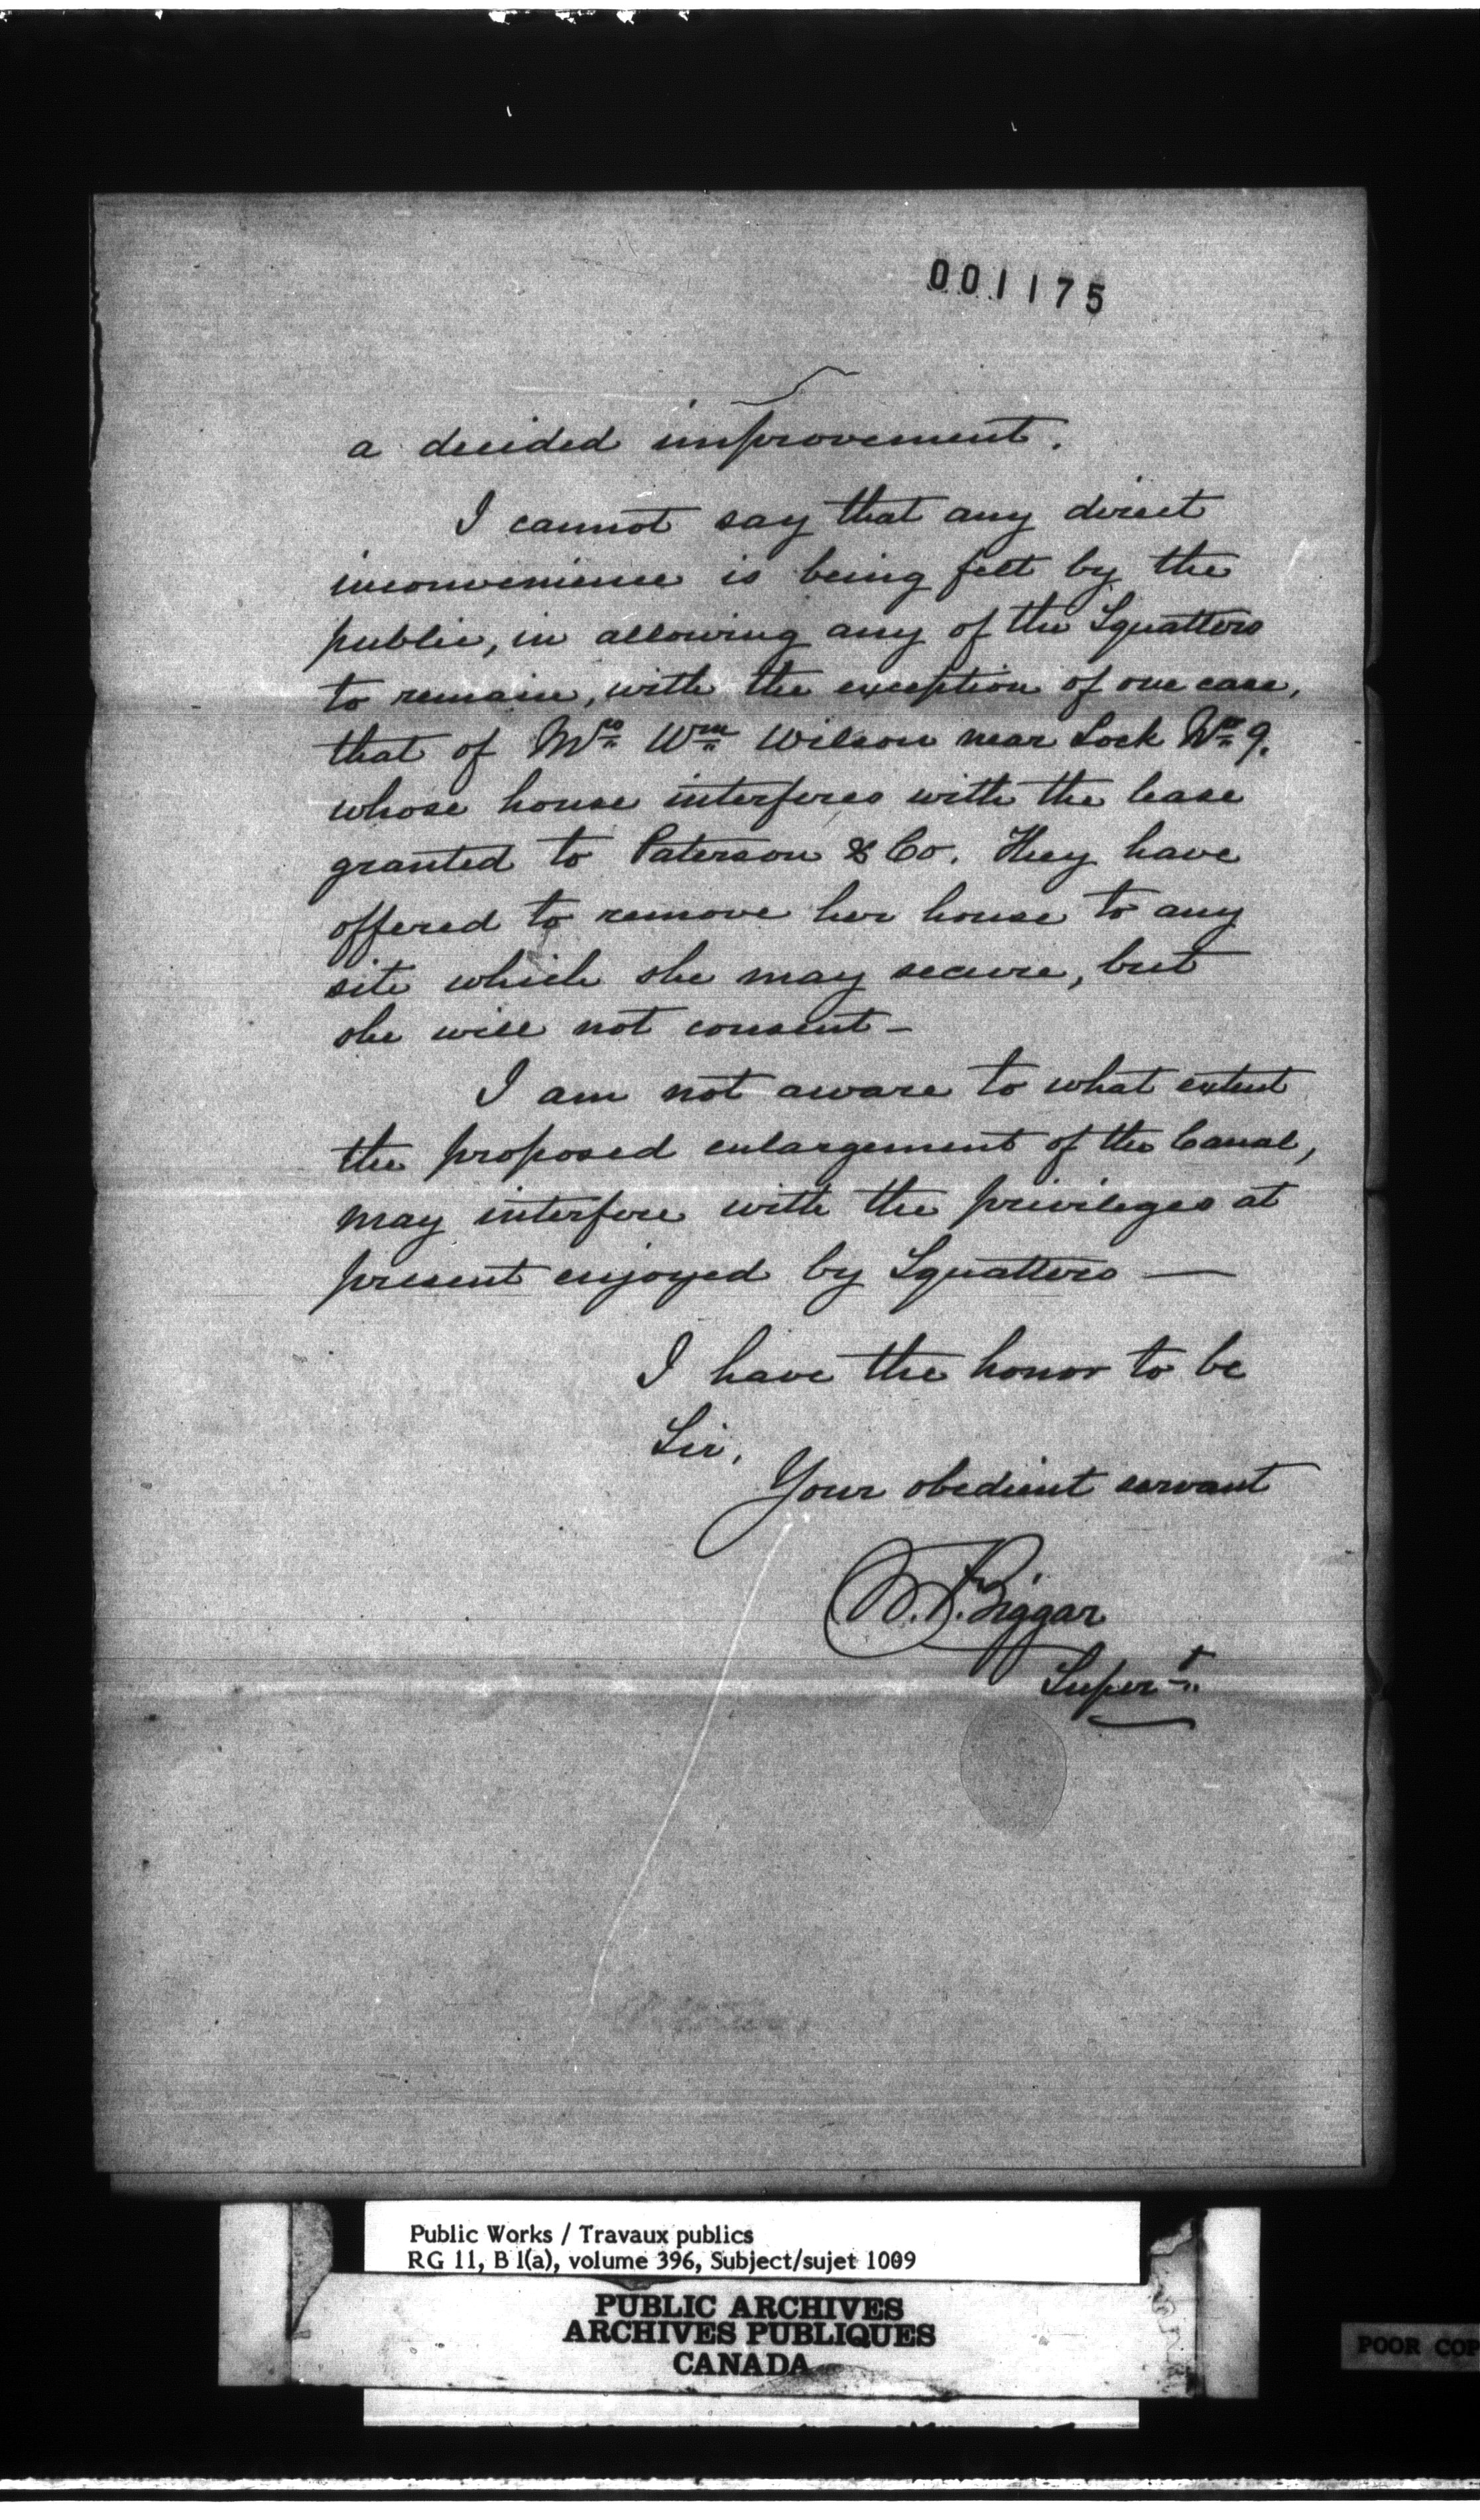 001175
a decided improvement.
I cannot say that any direct
inconvenience is being felt by the
public, in allowing any of the Squatters
to remain, with the exception of one case,
that of Mrs Wm Wilson near Lock No 9.
whose house interferes with the lease
granted to Paterson & Co. They have
offered to remove her house to any
site which she may secure, but
she will not consent—
I am not aware to what extent
the proposed enlargement of the Canal,
may interfere with the privileges at
present enjoyed by Squatters —
I have the honor to be
Sir,
Your obedient servant
Biggar
Supert
Public Works / Travaux publics
RG 11, B 1(a), volume 396, Subject/sujet 1009
PUBLIC ARCHIVES
ARCHIVES PUBLIQUES
CANADA
POOR COP